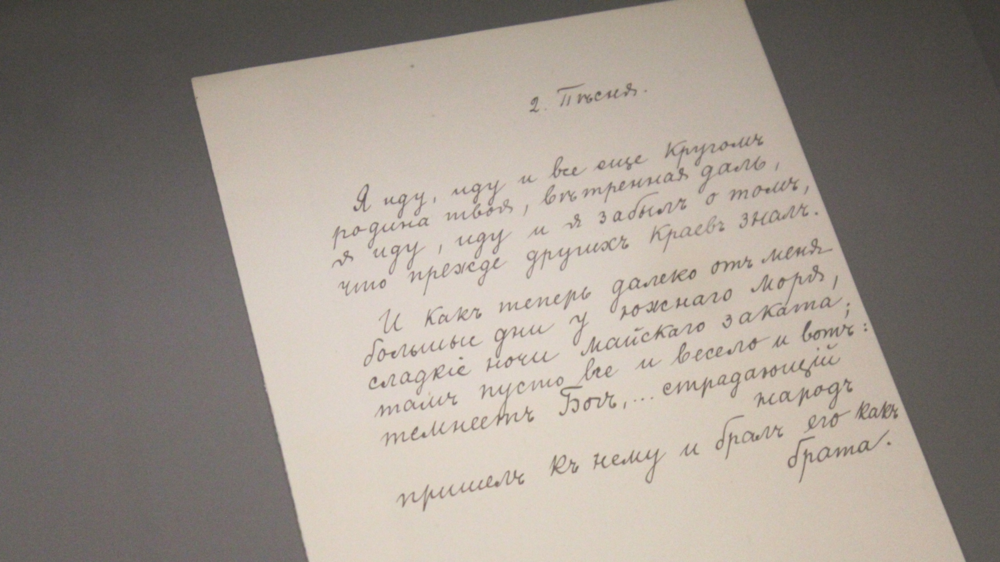 2. Пѣсня.
Я иду, иду и все еще кругомъ
родина твоя, вѣтренная даль,
я иду, иду и я забылъ о томъ,
что прежде другихъ краевъ зналъ.
И какъ теперь далеко отъ меня
большыи дни у южнаго моря,
сладкіе ночи майскаго заката;
тамъ пусто все и весело и вотъ:
темнеетъ Богъ,... страдающій
народъ
пришелъ къ нему и бралъ его какъ
брата.